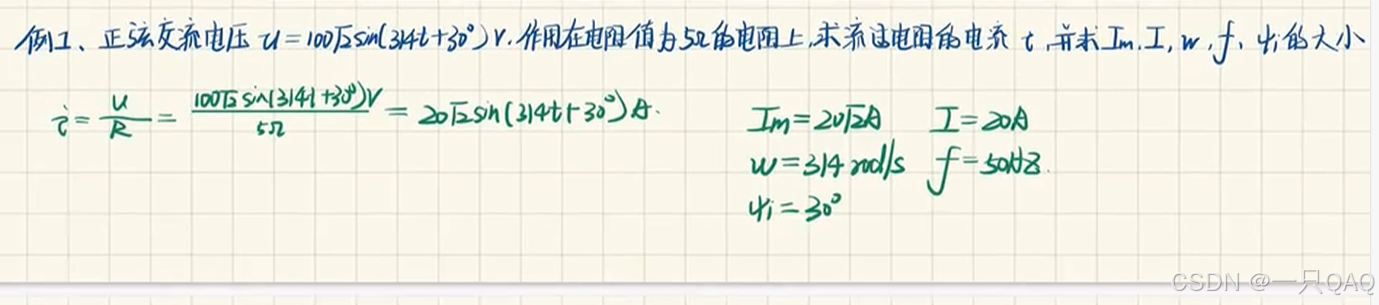 例1、正弦交流电压 u=100√2sin(314t+30°)V.作用在电阻值为5Ω的电阻上,求流过电阻的电流 i,并求Im,I,w,f,ψi的大小
i=u/R=100√2sin(314t+30°)V/5Ω=20√2sin(314t+30°)A.
Im=20√2A I=20A
w=314rad/s f=50HZ.
ψi=30°
CSDN @一只QAQ